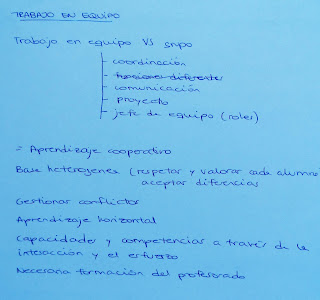 TRABAJO EN EQUIPO
Trabajo en equipo VS grupo
coordinación
funciones diferentes
comunicación
proyecto
jefe de equipo (roles)
= Aprendizaje cooperativo
Base heterogenea (respetar y valorar cada alumno
aceptar diferencias
Gestionar conflictos
Aprendizaje horizontal
Capacidades y competencias a través de la
interacción y el esfuerzo
Necesaria formación del profesorado